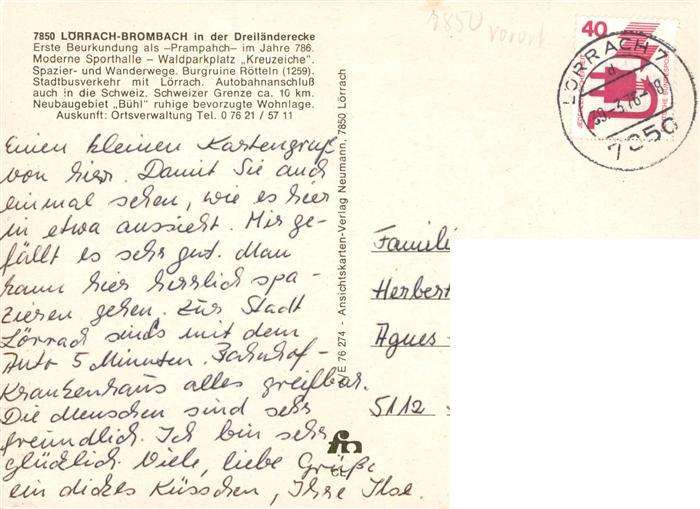 7850 LÖRRACH-BROMBACH in der Dreiländerecke
Erste Beurkundung als –Prampahch– im Jahre 786.
Moderne Sporthalle – Waldparkplatz „Kreuzeiche".
Spazier- und Wanderwege. Burgruine Rötteln (1259).
Stadtbusverkehr mit Lörrach. Autobahnanschluß
auch in die Schweiz. Schweizer Grenze ca. 10 km.
Neubaugebiet „Bühl" ruhige bevorzugte Wohnlage.
Auskunft: Ortsverwaltung Tel. 0 76 21 / 57 11
Einen kleinen Kartengruß
von hier. Damit Sie auch
einmal sehen, wie es hier
in etwa aussieht. Mir ge-
fällt es sehr gut. Man
kann hier herrlich spa-
zieren gehen. Zur Stadt
Lörrach sinds mit dem
Auto 5 Minuten. Bahnhof-
Krankenhaus alles greifbar.
Die Menschen sind sehr
freundlich. Ich bin sehr
glücklich. Viele, liebe Grüße
ein dickes Küsschen, Ihre Ilse.
VE 76 274 - Ansichtskarten-Verlag Neumann, 7850 Lörrach
7850
40
LÖRRACH 7
7850
Famili
Herbert
Agnes -
5112